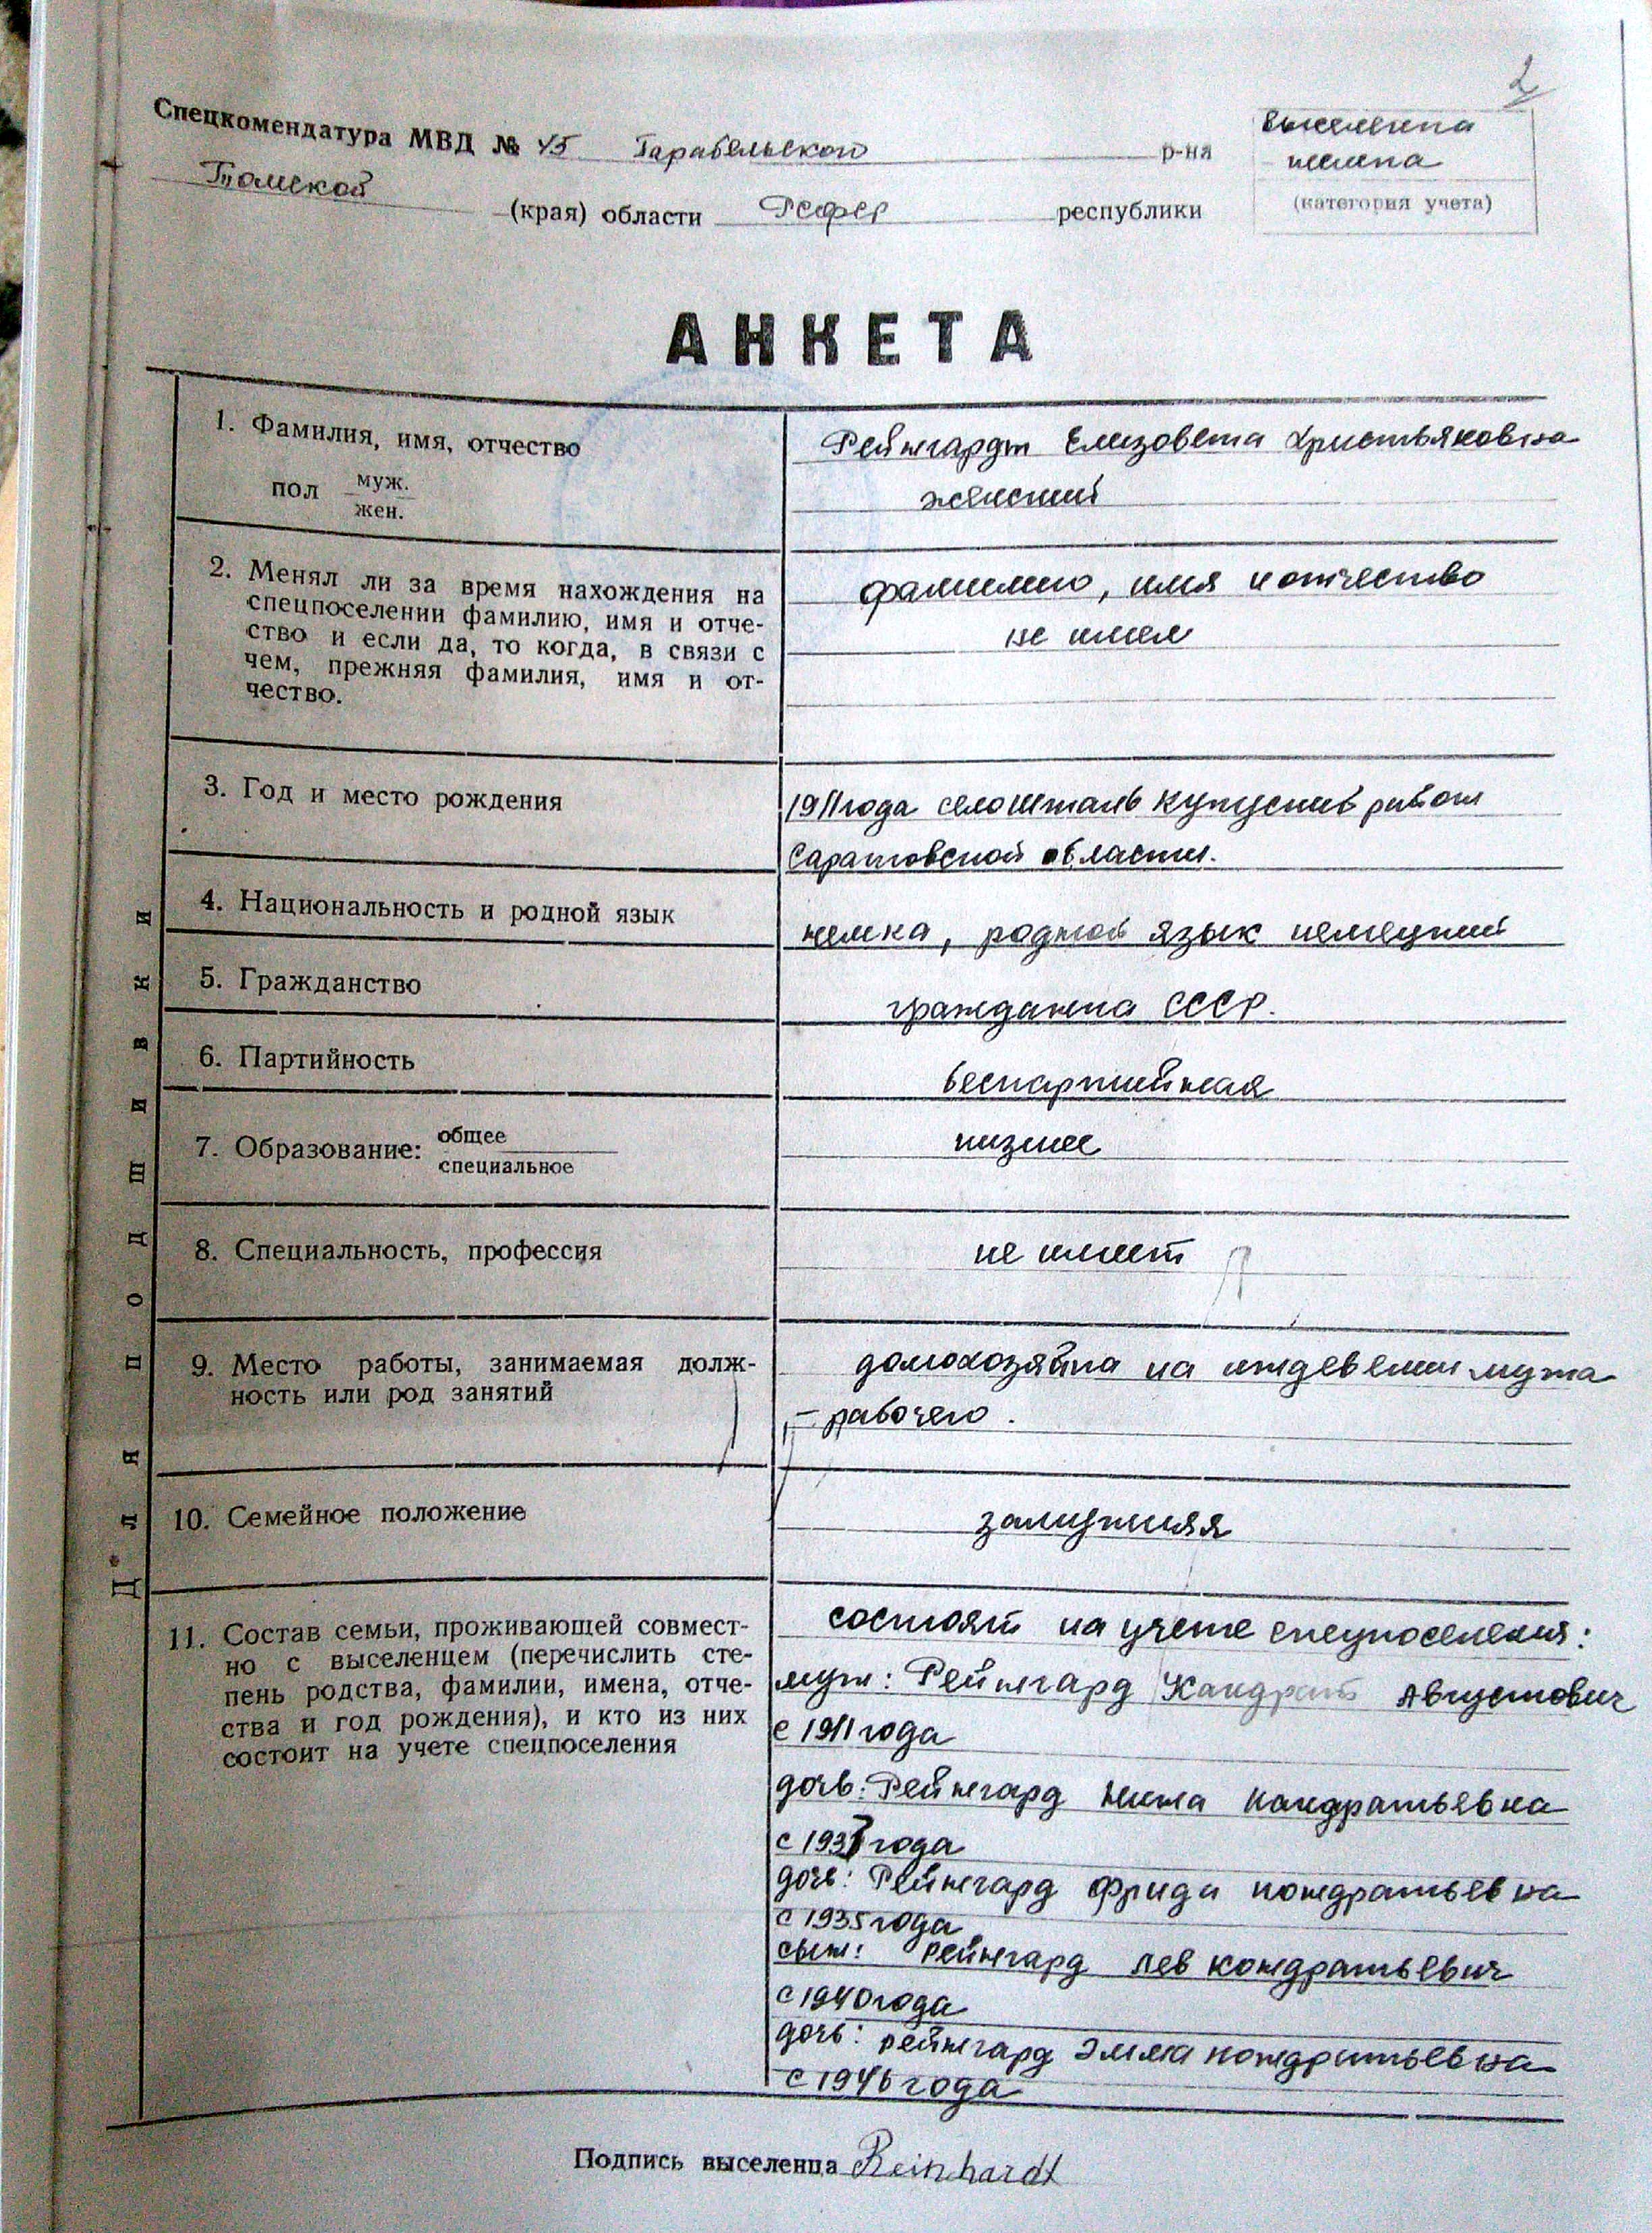 2
Спецкомендатура МВД № 45 Парабельского р-на
Томской (края) области Рсфср республики
выселенка
немка
(категория учета)
АНКЕТА
1. Фамилия, имя, отчество
пол муж.
жен.
Рейнгардт Елизовета Христьяновна
женский
2. Менял ли за время нахождения на
спецпоселении фамилию, имя и отче-
ство и если да, то когда, в связи с
чем, прежняя фамилия, имя и от-
чество.
фамилию, имя и отчество
не
3. Год и место рождения
1911 года село Шталь район
Саратовской области.
4. Национальность и родной язык
немка, родной язык немецкий
5. Гражданство
гражданка СССР.
6. Партийность
беспартийная
7. Образование: общее
специальное
низшее
8. Специальность, профессия
не имеет
9. Место работы, занимаемая долж-
ность или род занятий
домохозяйка на мужа
- рабочего.
10. Семейное положение
замужняя
11. Состав семьи, проживающей совмест-
но с выселенцем (перечислить сте-
пень родства, фамилии, имена, отче-
ства и год рождения), и кто из них
состоит на учете спецпоселения
состоят на учете спецпоселения:
муж: Рейнгард Кандрат Августович
с 1911 года
дочь: Рейнгард Нина Кандратьевна
с 1937 года
дочь: Рейнгард Фрида Кондратьевна
с 1935 года
сын: Рейнгард Лев Кондратьевич
с 1940 года
дочь: Рейнгард Эмма Кондратьевна
с 1946 года
Подпись выселенца Reinhardt
Для подшивки